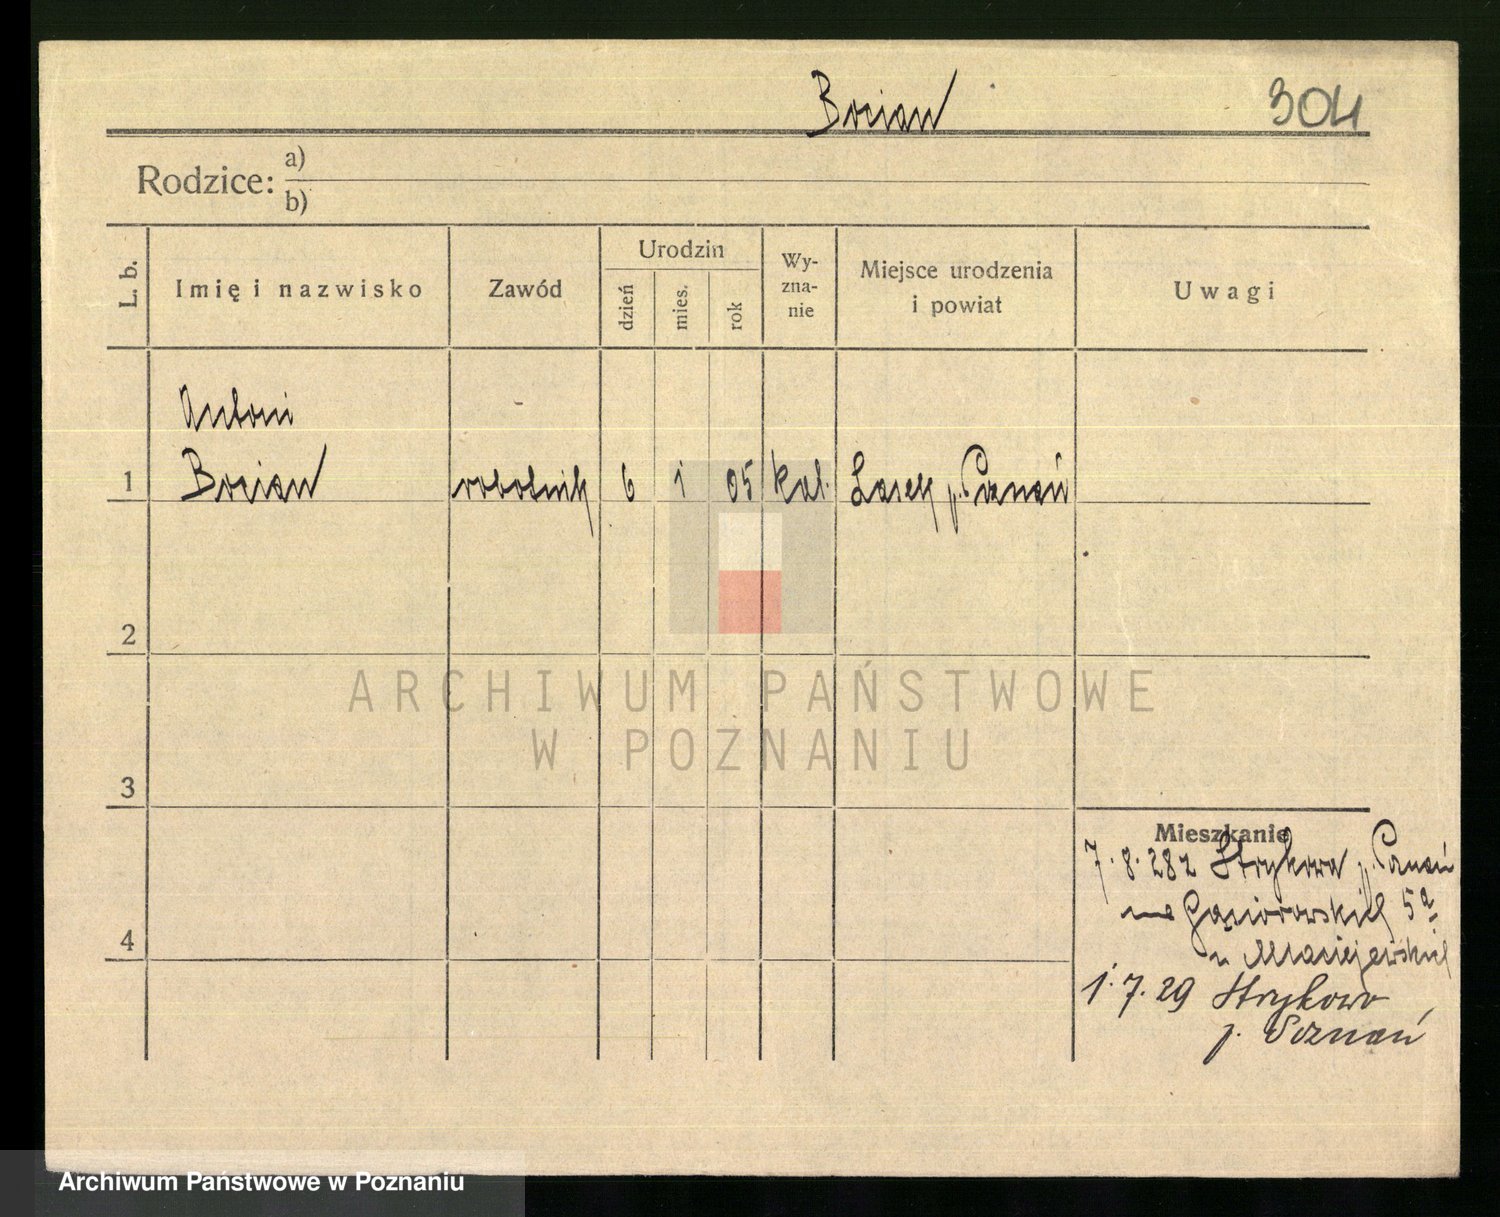 Bocian 304
Rodzice: a)
b)
L. b. Imię i nazwisko Zawód Urodzin dzień mies. rok Wy-zna-nie Miejsce urodzenia i powiat Uwagi
Antoni
1 Bocian robotnik 6 1 05 kat. Lasek p. Poznań
2
3
4
Mieszkanie
7.8.28 z Strykowa p. Poznań
na Gąsiorowskich 5a
u Maciejewskich
1.7.29 Strykowo
p. Poznań
ARCHIWUM PAŃSTWOWE
W POZNANIU
Archiwum Państwowe w Poznaniu